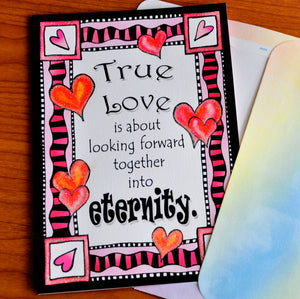 True
Love
is about
looking forward
together
into
eternity.